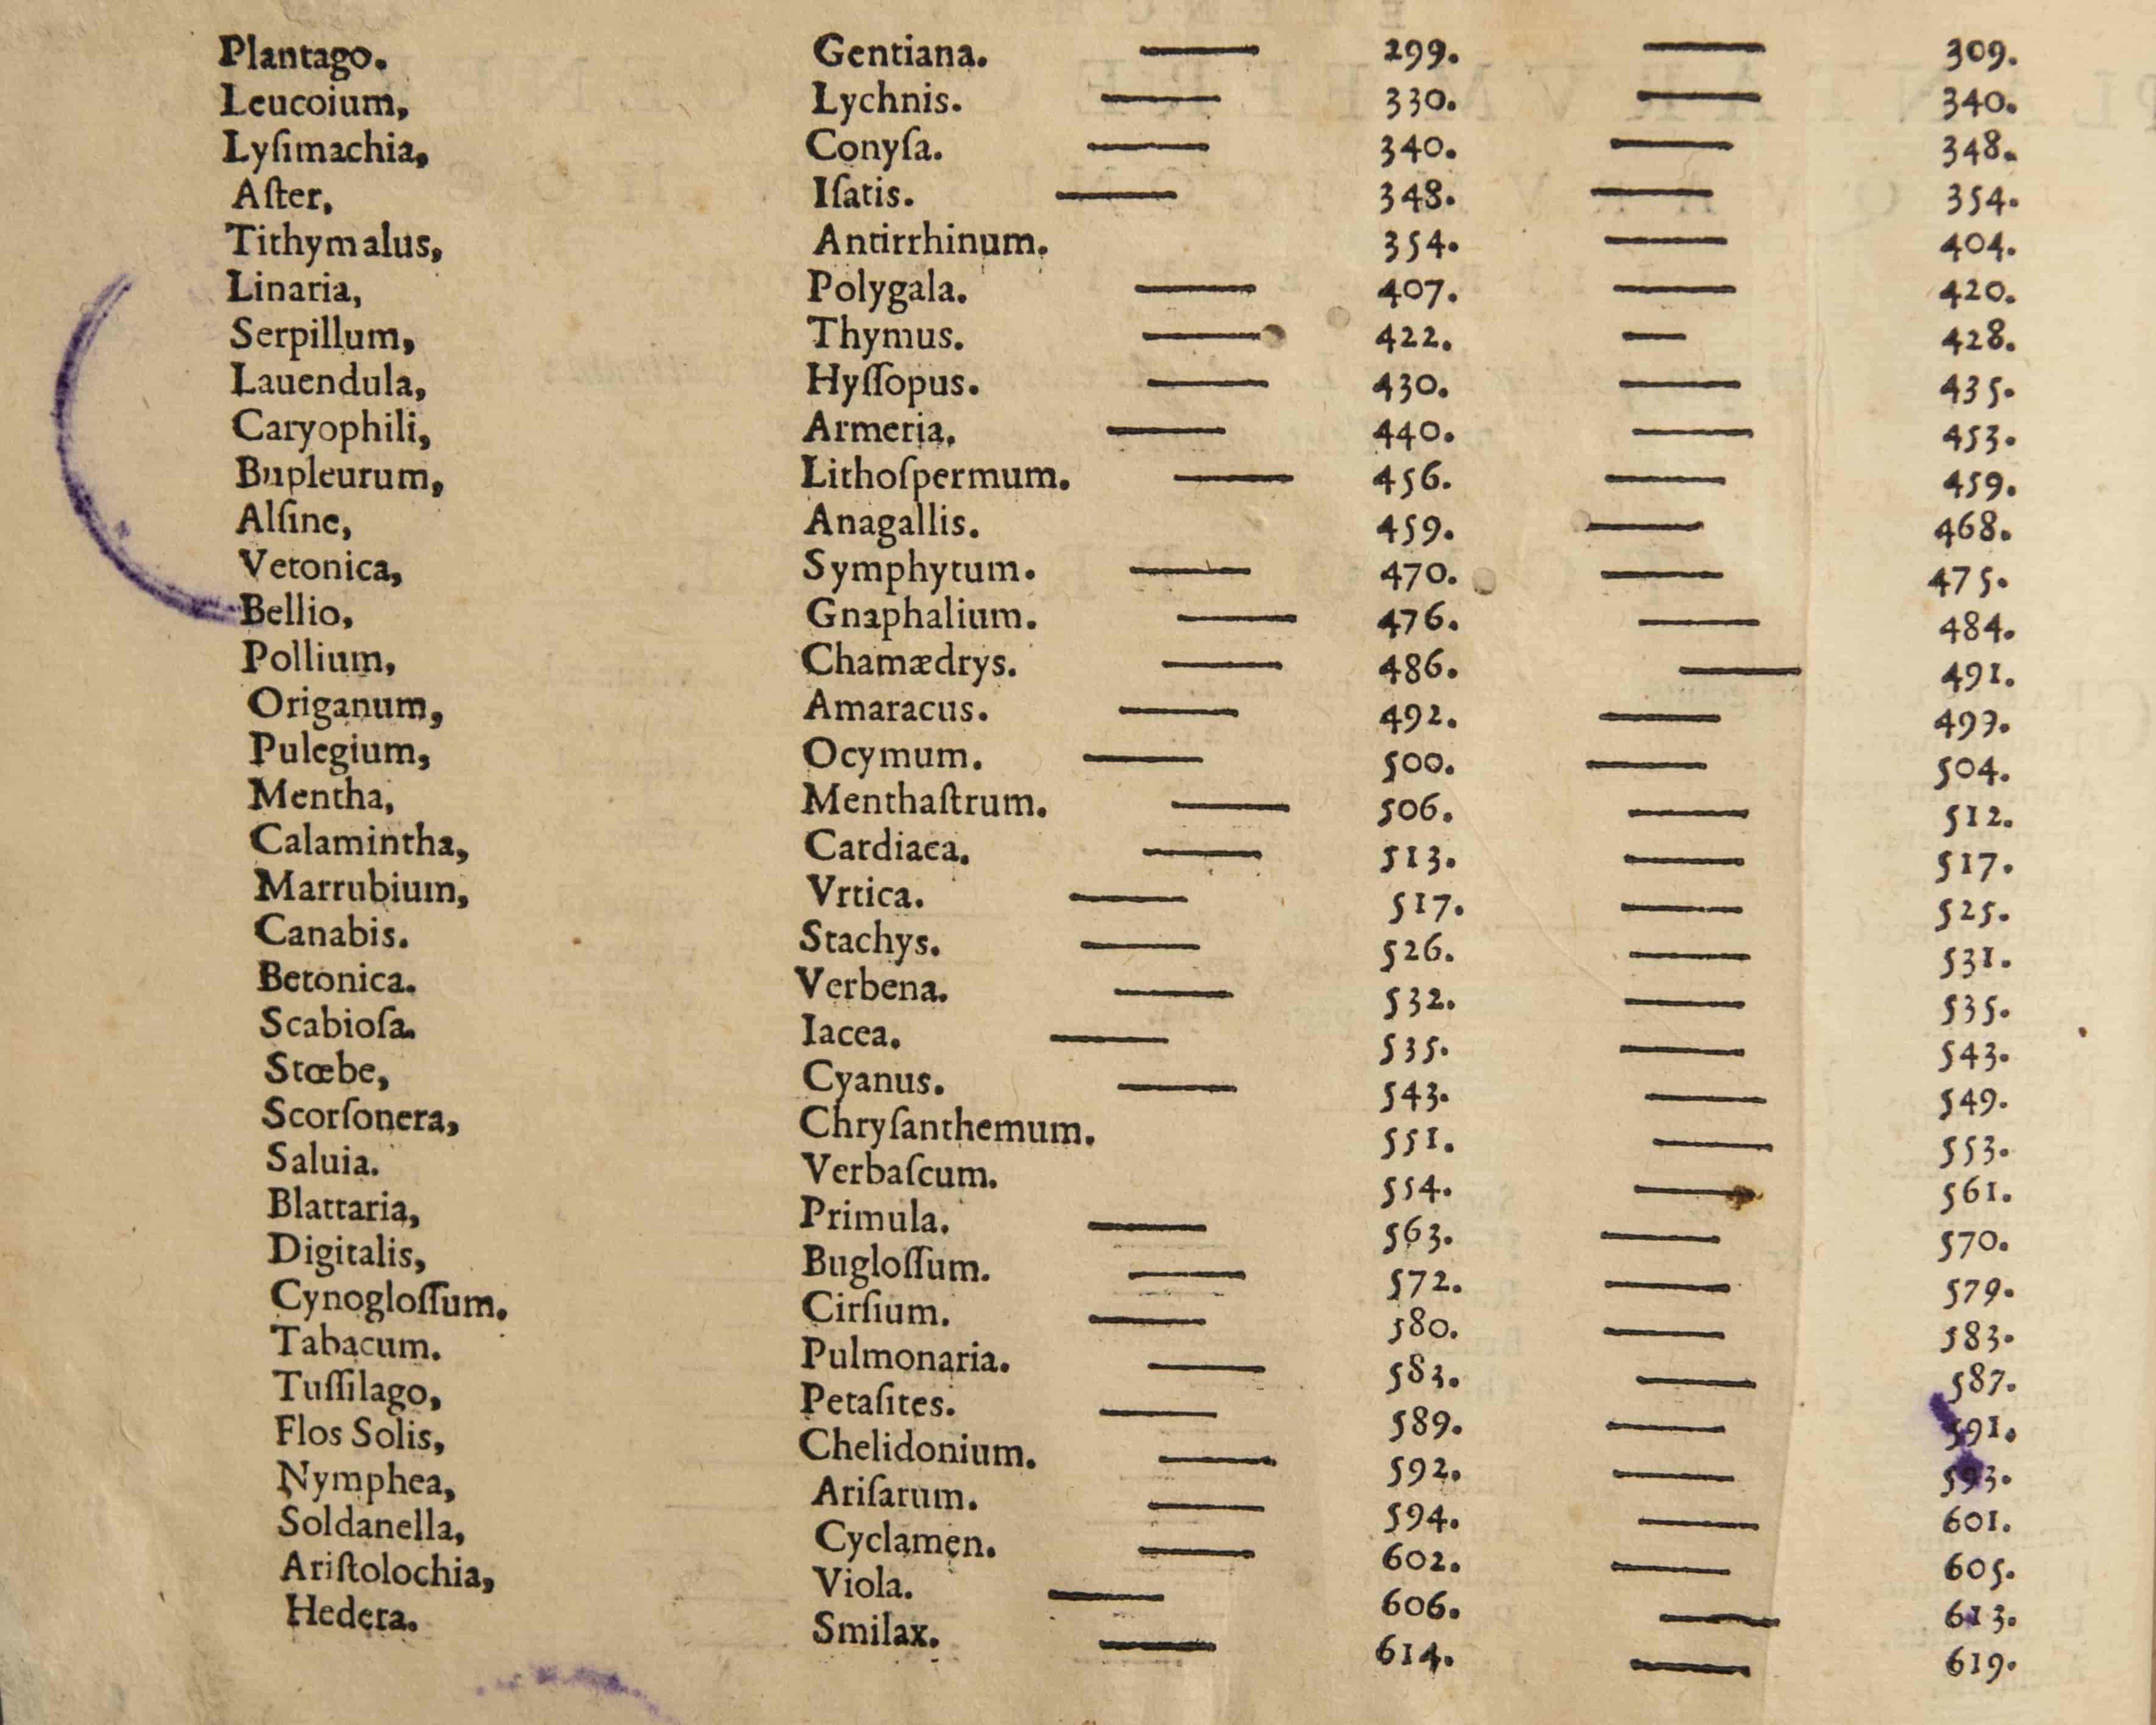 Plantago. Gentiana. — 299. — 309.
Leucoium, Lychnis. — 330. — 340.
Lyſimachia, Conyſa. — 340. — 348.
Aſter, Iſatis. — 348. — 354.
Tithymalus, Antirrhinum. 354. — 404.
Linaria, Polygala. — 407. — 420.
Serpillum, Thymus. — 422. — 428.
Lauendula, Hyſſopus. — 430. — 435.
Caryophili, Armeria, — 440. — 453.
Bupleurum, Lithoſpermum. — 456. — 459.
Alſine, Anagallis. 459. — 468.
Vetonica, Symphytum. — 470. — 475.
Bellio, Gnaphalium. — 476. — 484.
Pollium, Chamædrys. — 486. — 491.
Origanum, Amaracus. — 492. — 499.
Pulegium, Ocymum. — 500. — 504.
Mentha, Menthaſtrum. — 506. — 512.
Calamintha, Cardiaca. — 513. — 517.
Marrubium, Vrtica. — 517. — 525.
Canabis. Stachys. — 526. — 531.
Betonica. Verbena. — 532. — 535.
Scabioſa. Iacea. — 535. — 543.
Stœbe, Cyanus. — 543. — 549.
Scorſonera, Chryſanthemum. 551. — 553.
Saluia. Verbaſcum. 554. — 561.
Blattaria, Primula. — 563. — 570.
Digitalis, Bugloſſum. — 572. — 579.
Cynogloſſum. Cirſium. — 580. — 583.
Tabacum. Pulmonaria. — 583. — 587.
Tuſſilago, Petaſites. — 589. — 591.
Flos Solis, Chelidonium. — 592. — 593.
Nymphea, Ariſarum. — 594. — 601.
Soldanella, Cyclamen. — 602. — 605.
Ariſtolochia, Viola. — 606. — 613.
Hedera. Smilax. — 614. — 619.